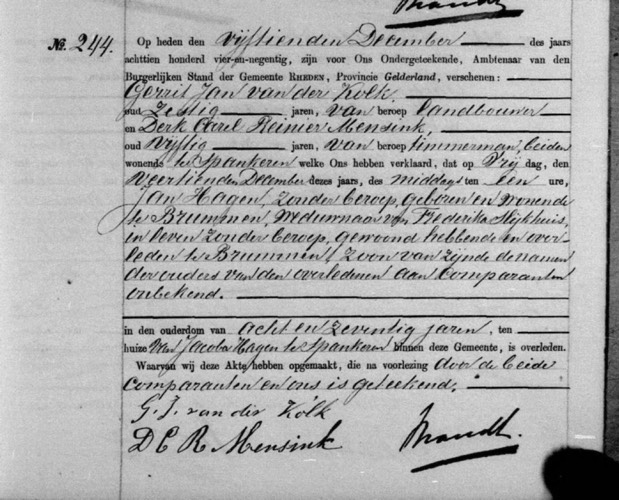 Brandt
No. 244.
Op heden den vijftienden December des jaars
achttien honderd vier-en-negentig, zijn voor Ons Ondergeteekende, Ambtenaar van den
Burgerlijken Stand der Gemeente RHEDEN, Provincie Gelderland, verschenen:
Gerrit Jan van der Kolk,
oud Zestig jaren, van beroep landbouwer
en Derk Carel Reinier Mensink,
oud Vijftig jaren, van beroep timmerman, beiden
wonende te Spankeren welke Ons hebben verklaard, dat op Vrijdag, den
Veertienden December dezes jaars, des middags ten een ure,
Jan Hagen, zonder beroep, geboren en wonende
te Brummen, weduwnaar van Frederika Slijkhuis,
in leven zonder beroep, gewoond hebbende en over-
leden te Brummen, zoon van zijnde de namen
der ouders van den overledenen aan Comparanten
onbekend.
in den ouderdom van acht en zeventig jaren, ten
huize van Jacoba Hagen te Spankeren binnen deze Gemeente, is overleden.
Waarvan wij deze Akte hebben opgemaakt, die na voorlezing door de beide
comparanten en ons is geteekend.
G. J. van der Kolk
D C R Mensink Brandt.